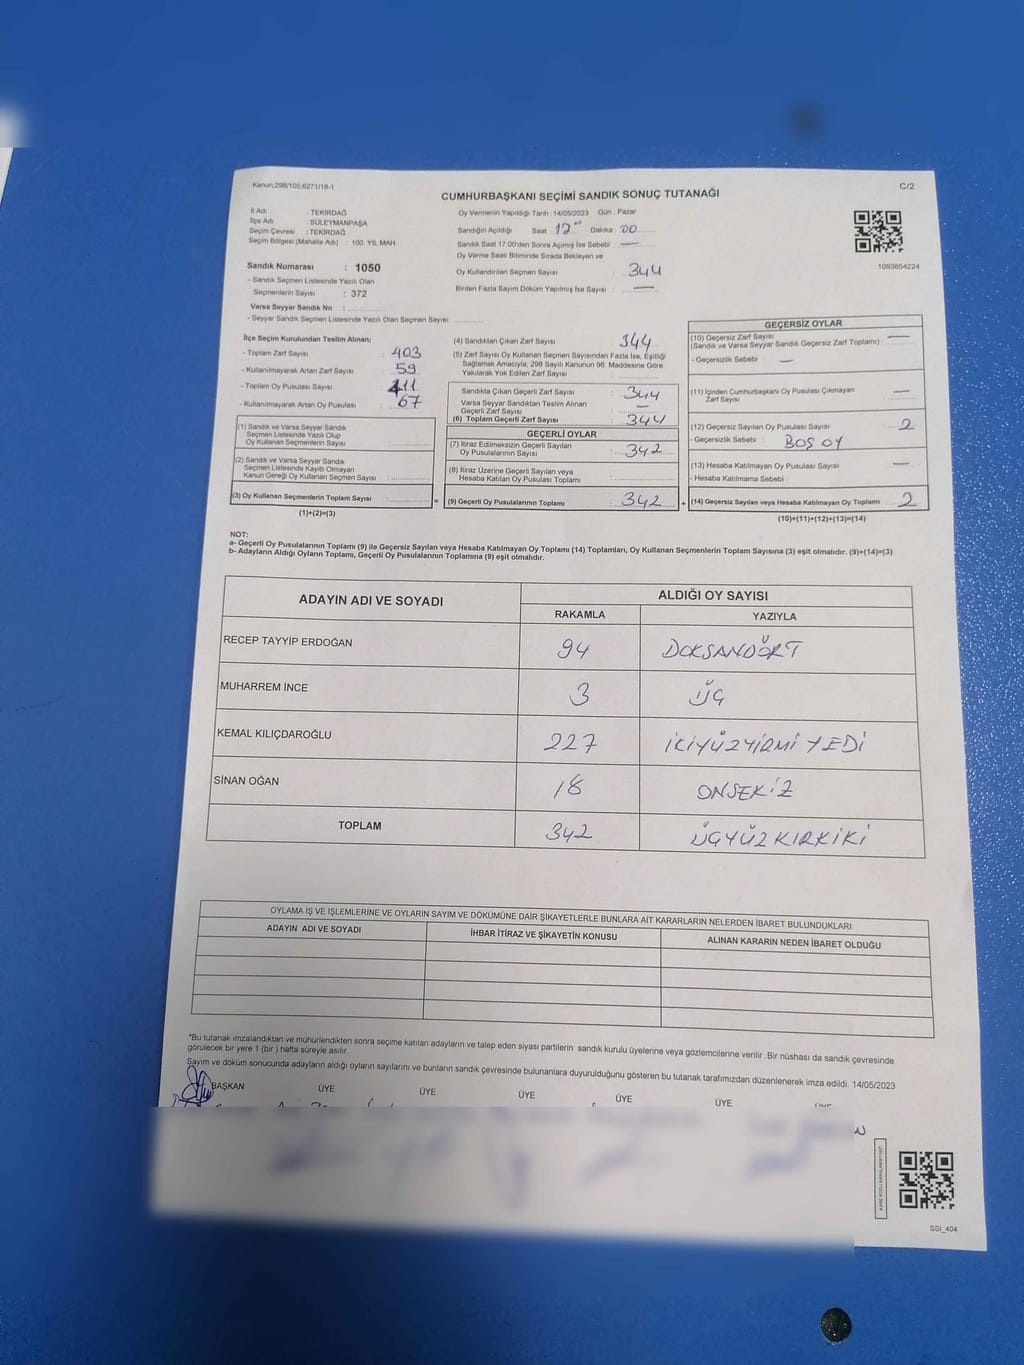 Kanun;298/105;6271/18-1
C/2
CUMHURBAŞKANI SEÇİMİ SANDIK SONUÇ TUTANAĞI
İl Adı : TEKİRDAĞ
İlçe Adı : SÜLEYMANPAŞA
Seçim Çevresi : TEKİRDAĞ
Seçim Bölgesi (Mahalle Adı) : 100. YIL MAH.
Sandık Numarası : 1050
- Sandık Seçmen Listesinde Yazılı Olan
Seçmenlerin Sayısı : 372
Varsa Seyyar Sandık No :
- Seyyar Sandık Seçmen Listesinde Yazılı Olan Seçmen Sayısı:
Oy Vermenin Yapıldığı Tarih : 14/05/2023 Gün : Pazar
Sandığın Açıldığı Saat : 17 Dakika : 00
Sandık Saat 17.00'den Sonra Açımış İse Sebebi : —
Oy Verme Saati Bitiminde Sırada Bekleyen ve
Oy Kullandırılan Seçmen Sayısı : 344
Birden Fazla Sayım Döküm Yapılmış İse Sayısı : —
1093854224
İlçe Seçim Kurulundan Teslim Alınan;
- Toplam Zarf Sayısı : 403
- Kullanılmayarak Artan Zarf Sayısı : 59
- Toplam Oy Pusulası Sayısı : 411
- Kullanılmayarak Artan Oy Pusulası : 67
(1) Sandık ve Varsa Seyyar Sandık
Seçmen Listesinde Yazılı Olup
Oy Kullanan Seçmenlerin Sayısı :
(2) Sandık ve Varsa Seyyar Sandık
Seçmen Listesinde Kayıtlı Olmayan
Kanun Gereği Oy Kullanan Seçmen Sayısı :
(3) Oy Kullanan Seçmenlerin Toplam Sayısı :
(1)+(2)=(3)
(4) Sandıktan Çıkan Zarf Sayısı : 344
(5) Zarf Sayısı Oy Kullanan Seçmen Sayısından Fazla İse, Eşitliği
Sağlamak Amacıyla, 298 Sayılı Kanunun 98. Maddesine Göre
Yakılarak Yok Edilen Zarf Sayısı :
Sandıkta Çıkan Geçerli Zarf Sayısı : 344
Varsa Seyyar Sandıktan Teslim Alınan
Geçerli Zarf Sayısı : —
(6) Toplam Geçerli Zarf Sayısı : 344
GEÇERLİ OYLAR
(7) İtiraz Edilmeksizin Geçerli Sayılan
Oy Pusulalarının Sayısı : 342
(8) İtiraz Üzerine Geçerli Sayılan veya
Hesaba Katılan Oy Pusulası Toplamı :
= (9) Geçerli Oy Pusulalarının Toplamı : 342 +
GEÇERSİZ OYLAR
(10) Geçersiz Zarf Sayısı : —
(Sandık ve Varsa Seyyar Sandık Geçersiz Zarf Toplamı)
- Geçersizlik Sebebi : —
(11) İçinden Cumhurbaşkanı Oy Pusulası Çıkmayan
Zarf Sayısı : —
(12) Geçersiz Sayılan Oy Pusulası Sayısı : 2
- Geçersizlik Sebebi : BOŞ OY
(13) Hesaba Katılmayan Oy Pusulası Sayısı : —
- Hesaba Katılmama Sebebi :
(14) Geçersiz Sayılan veya Hesaba Katılmayan Oy Toplamı : 2
(10)+(11)+(12)+(13)=(14)
NOT:
a- Geçerli Oy Pusulalarının Toplamı (9) ile Geçersiz Sayılan veya Hesaba Katılmayan Oy Toplamı (14) Toplamları, Oy Kullanan Seçmenlerin Toplam Sayısına (3) eşit olmalıdır. (9)+(14)=(3)
b- Adayların Aldığı Oyların Toplamı, Geçerli Oy Pusulalarının Toplamına (9) eşit olmalıdır.
ADAYIN ADI VE SOYADI ALDIĞI OY SAYISI
RAKAMLA YAZIYLA
RECEP TAYYİP ERDOĞAN 94 DOKSANDÖRT
MUHARREM İNCE 3 ÜÇ
KEMAL KILIÇDAROĞLU 227 İKİYÜZYİRMİ YEDİ
SİNAN OĞAN 18 ONSEKİZ
TOPLAM 342 ÜÇYÜZKIRKİKİ
OYLAMA İŞ VE İŞLEMLERİNE VE OYLARIN SAYIM VE DÖKÜMÜNE DAİR ŞİKAYETLERLE BUNLARA AİT KARARLARIN NELERDEN İBARET BULUNDUKLARI
ADAYIN ADI VE SOYADI İHBAR İTİRAZ VE ŞİKAYETİN KONUSU ALINAN KARARIN NEDEN İBARET OLDUĞU
*Bu tutanak imzalandıktan ve mühürlendikten sonra seçime katılan adayların ve talep eden siyasi partilerin sandık kurulu üyelerine veya gözlemcilerine verilir .Bir nüshası da sandık çevresinde
görülecek bir yere 1 (bir ) hafta süreyle asılır.
Sayım ve döküm sonucunda adayların aldığı oyların sayılarını ve bunların sandık çevresinde bulunanlara duyurulduğunu gösteren bu tutanak tarafımızdan düzenlenerek imza edildi. 14/05/2023
BAŞKAN ÜYE ÜYE ÜYE ÜYE ÜYE
SSI_404